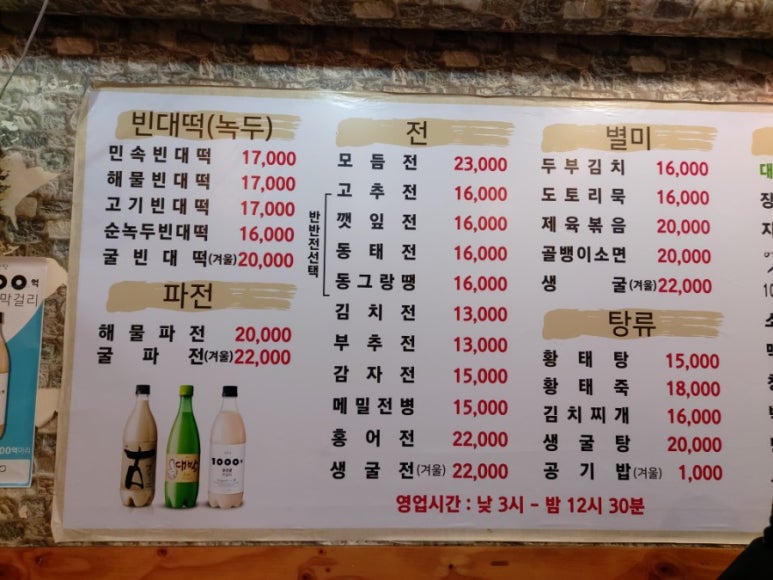 빈대떡(녹두)
민속빈대떡 17,000
해물빈대떡 17,000
고기빈대떡 17,000
순녹두빈대떡 16,000
굴빈대떡(겨울) 20,000
파전
해물파전 20,000
굴파전(겨울) 22,000
1000억
대박
전
모듬전 23,000
반반전선택
고추전 16,000
깻잎전 16,000
동태전 16,000
동그랑땡 16,000
김치전 13,000
부추전 13,000
감자전 15,000
메밀전병 15,000
홍어전 22,000
생굴전(겨울) 22,000
별미
두부김치 16,000
도토리묵 16,000
제육볶음 20,000
골뱅이소면 20,000
생굴(겨울) 22,000
탕류
황태탕 15,000
황태죽 18,000
김치찌개 16,000
생굴탕 20,000
공기밥(겨울) 1,000
영업시간 : 낮 3시 - 밤 12시 30분
막걸리